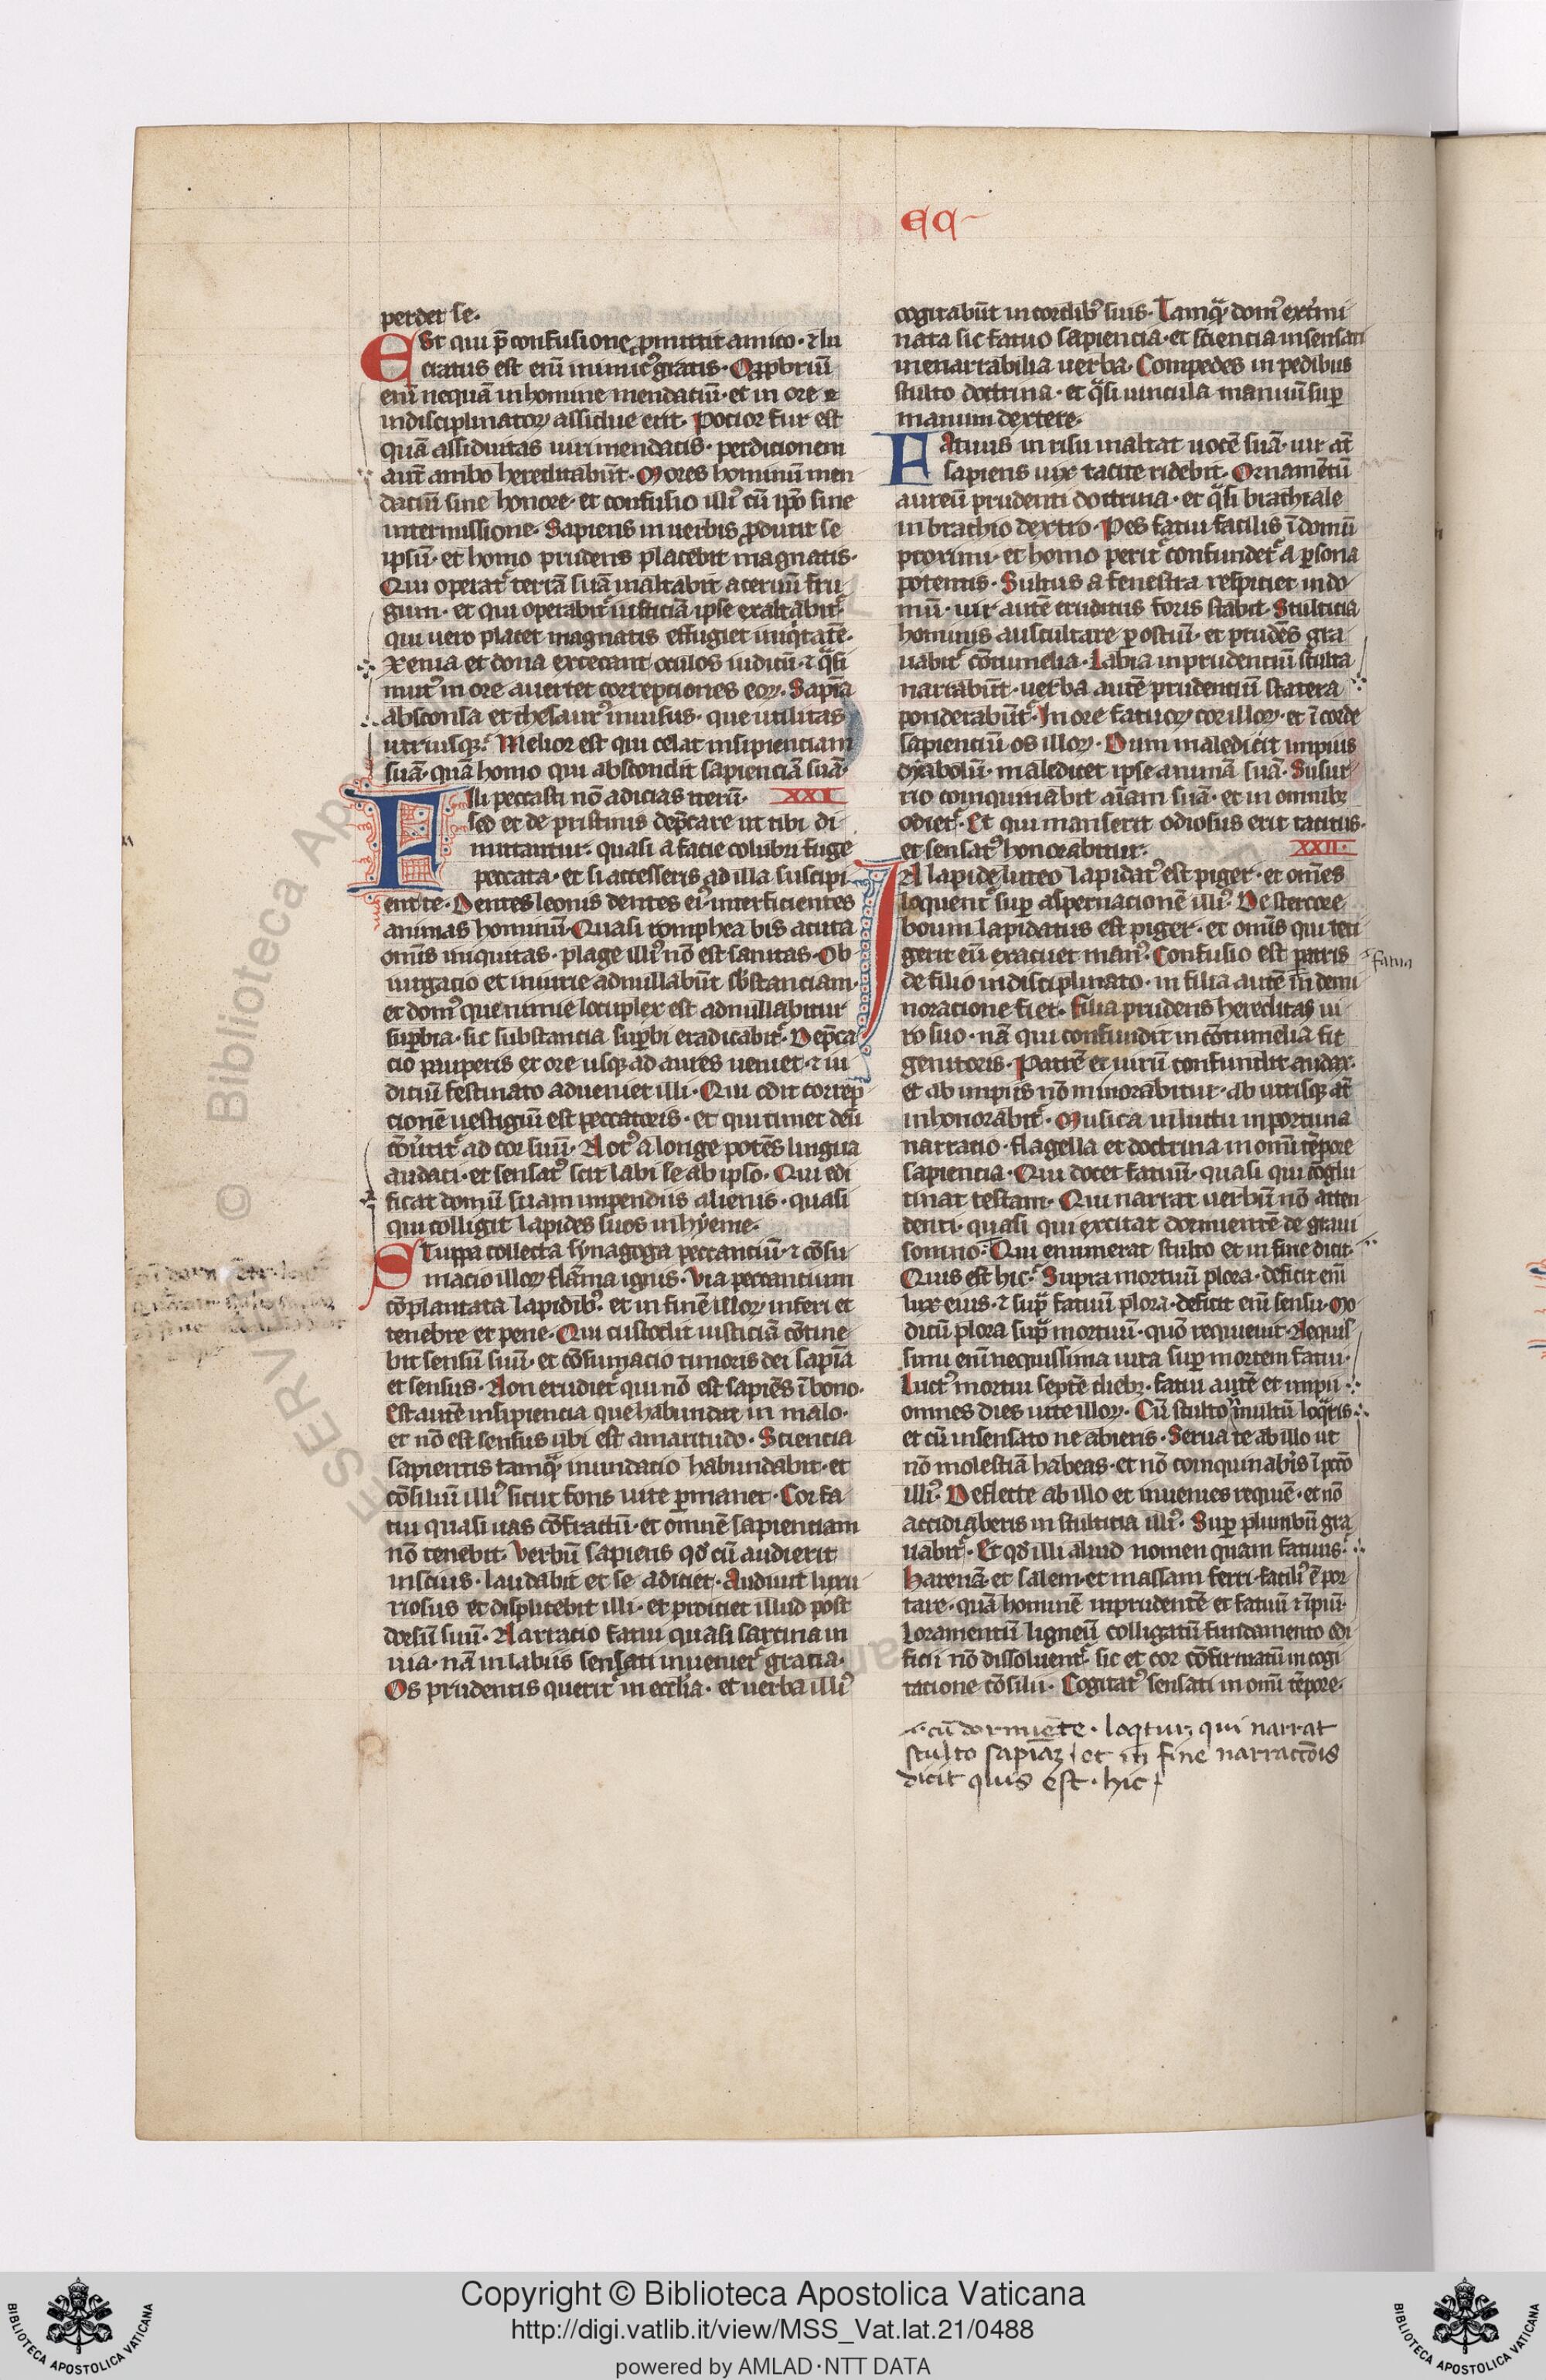 EC
perdet se.
Est qui p̄ confusione ꝓmittit amico · ⁊ lu
cratus est eum inimicꝰ gratis · Oppbriū
enī nequā in homine mendatiū · et in ore e
indisciplinatoꝝ assidue erit · Potior fur est
quā assiduitas uiri mendacis · perdicionem
aut̄ ambo hereditabūt · Mores hominū men
datiū sine honore · et confusio illiꝰ cū ip̄o sine
intermissione · Sapiens in uerbis ꝓducit se
ipsū · et homo prudens placebit magnatis ·
Qui operat᷑ terrā suā inaltabit aceruū fru
gum · et qui operabit᷑ iusticiā ipse exaltabit᷑ ·
qui uero placet magnatis effugiet iniq̇tatē ·
Xenia et dona excecant oculos iudicū · ⁊ q̈si
mutꝰ in ore auertet correpciones eoꝝ · Sapīa
absconsa et thesaurꝰ inuisus · que utilitas
utriusqꝫ · Melior est qui celat insipienciam
suā · quā homo qui abscondit sapienciā suā ·
Fili peccasti nō adicias iterū · XXI
sed et de pristinis dep̄care ut tibi di
mittantur · quasi a facie colubri fuge
peccata · et si accesseris ad illa suscipi
ent te · Dentes leonis dentes eiꝰ interficientes
animas hominū · Quasi romphea bis acuta
om̄is iniquitas · plage illiꝰ nō est sanitas · Ob
iurgacio et iniurie adnullabūt sb̄stanciam ·
et domꝰ que nimie locuplex est adnullabitur
suꝑbia · sic substancia suꝑbi eradicabit᷑ · Dep̄ca
cio pauperis ex ore usqꝫ ad aures ueniet · ⁊ iu
diciū festinato adueniet illi · Qui odit correp
cionē uestigiū est peccatoris · et qui timet deū
cōu̇tit᷑ ad cor suū · Notꝰ a longe potēs lingua
audaci · et sensatꝰ scit labi se ab ipso · Qui edi
ficat domū suam impendiis alienis · quasi
qui colligit lapides suos in hyeme ·
Stuppa collecta synagoga peccanciū · ⁊ cōsu
macio illoꝝ flāma ignis · Via peccantium
cōplantata lapidibꝰ · et in finē illoꝝ inferi et
tenebre et pene · Qui custodit iusticiā cōtine
bit sensū suū · et cōsumacio timoris dei sapīa
et sensus · Non erudiet᷑ qui nō est sapiēs ī bono ·
Est autē insipiencia que habundat in malo ·
et nō est sensus ubi est amaritudo · Sciencia
sapientis tamq̈ inundacio habundabit · et
cōsiliū illiꝰ sicut fons uite ꝑmanet · Cor fa
tui quasi uas cōfractū · et omnē sapienciam
nō tenebit · Verbū sapiens qd̕ cū audierit
inscius · laudabit et se adiciet · Audiuit luxu
riosus et displicebit illi · et proiciet illud post
dorsū suū · Narracio fatui quasi sarcina in
uia · nā in labiis sensati inueniet᷑ gracia ·
Os prudentis querit᷑ in ecclīa · et uerba illiꝰ
cogitabūt in cordibꝰ suis · Tamq̈ domꝰ ext̓mi
nata sic fatuo sapiencia · et sciencia insensati
inenarrabilia uerba · Compedes in pedibus
stulto doctrina · et q̈si uincula manuū suꝑ
manum dextere ·
Fatuus in risu inaltat uocē suā · uir at̄
sapiens uix tacite ridebit · Ornamētū
aureū prudenti doctrina · et q̈si brachiale
in brachio dextro · Pes fatui facilis ī domū
proximi · et homo perit᷑ confundet᷑ a ꝑsona
potentis · Sultus a fenestra respiciet in do
mū · uir autē eruditus foris stabit · Stulticia
hominis auscultare ꝑ ostiū · et prudēs gra
uabit᷑ cōtumelia · Labia inprudenciū stulta
narrabūt · uerba autē prudenciū statera
ponderabūt᷑ · In ore fatuoꝝ cor illoꝝ · et ī corde
sapienciū os illoꝝ · Dum maledicit impius
dyabolū · maledicet ipse animā suā · Susur
rio coinquinabit aīam suā · et in omnibꝫ
odiet᷑ · Et qui manserit odiosus erit tacitus ·
et sensatꝰ honorabitur · XXII ·
In lapide luteo lapidatꝰ est piger · et om̄es
loquent᷑ suꝑ aspernacionē illiꝰ · De stercore
boum lapidatus est piger · et om̄is qui teti
gerit eū excuciet manꝰ · Confusio est patris
fatua
de filio indisciplinato · in filia autē in demi
noracione fiet · Filia prudens hereditas ui
ro suo · nā qui confundit in cōtumelia fit
genitoris · Patrē et uirū confundit audax ·
et ab impiis nō minorabitur · ab utrisqꝫ at̄
inhonorabit᷑ · Musica in luctu inportuna
narracio · flagella et doctrina in omī tēpore
sapiencia · Qui docet fatuū · quasi qui cōglu
tinat testam · Qui narrat uerbū nō atten
denti · quasi qui excitat dormientē de graui
somno · Qui enumerat stulto et in fine dicit ·
Quis est hic · Supra mortuū plora · deficit enī
lux eius · ⁊ sup̈ fatuū plora · deficit enī sensu · Mo
dicū plora sup̈ mortuū · quō requieuit · Nequis
simi enī nequissima uita suꝑ mortem fatui ·
Luctꝰ mortui septē diebꝫ · fatui autē et impii
omnes dies uite illoꝝ · Cū stulto n̄ multū loq̈ris
et cū insensato ne abieris · Serua te ab illo ut
nō molestiā habeas · et nō coinquinab̓is ī pctō
illiꝰ · Deflecte ab illo et inuenies requiē · et nō
accidiaberis in stulticia illiꝰ · Suꝑ plumbū gra
uabit᷑ · Et qd̕ illi aliud nomen quam fatuus ·
Harenā et salem et massam ferri · faciliꝰ ē por
tare · quā hominē inprudentē et fatuū ⁊ īpiū ·
Loramentū ligneū colligatū fundamento edi
ficii nō dissoluent᷑ · sic et cor cōfirmatū in cogi
tacione cōsilii · Cogitatꝰ sensati in omī tēpore ·
cū dormiente · loqtur qui narrat
stulto sapiāꝫ et in fine narractōis
dicit quis est · hic
© Biblioteca Ap
Copyright © Biblioteca Apostolica Vaticana
http://digi.vatlib.it/view/MSS_Vat.lat.21/0488
powered by AMLAD · NTT DATA
BIBLIOTECA APOSTOLICA VATICANA
BIBLIOTECA APOSTOLICA VATICANA